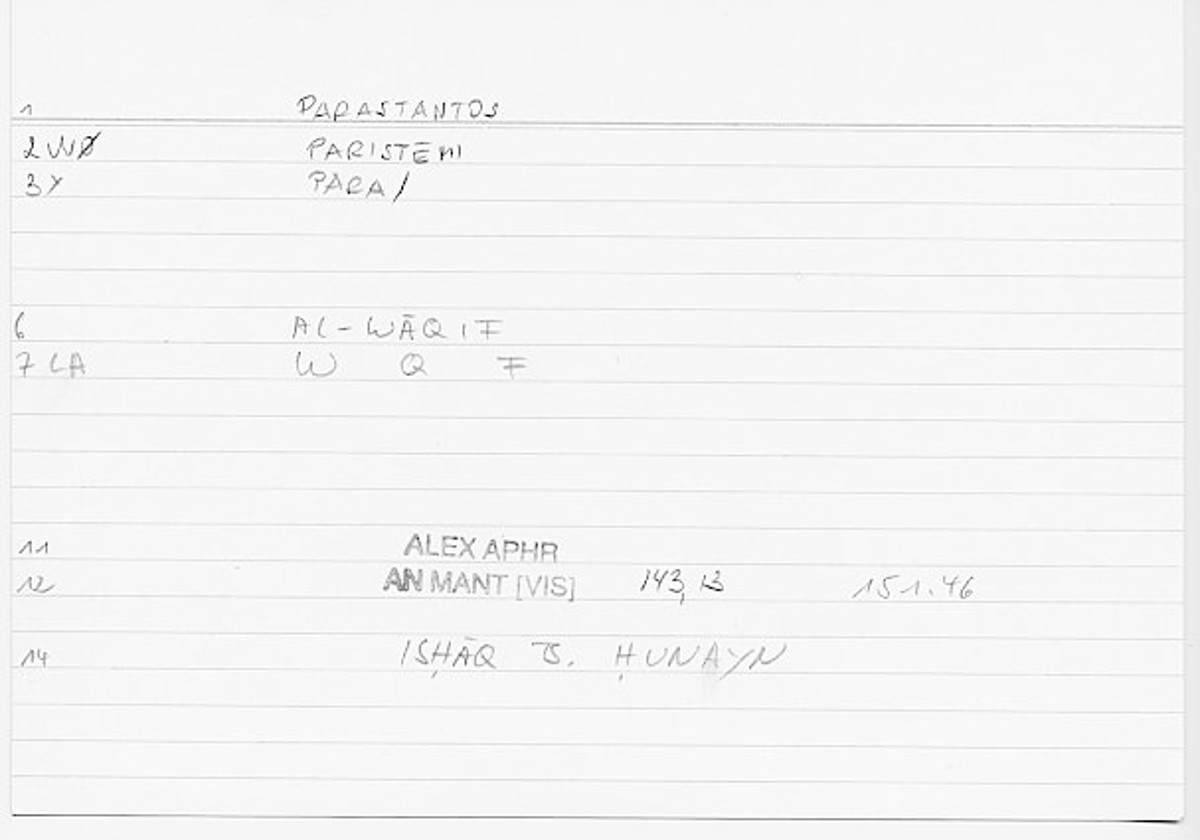 1 PARASTANTOS
2 WØ PARISTĒMI
3 Y PARA/
6 AL-WĀQIF
7 LA W Q F
11 ALEX APHR
12 AN MANT [VIS] 143,13 151.46
14 ISḤĀQ B. ḤUNAYN